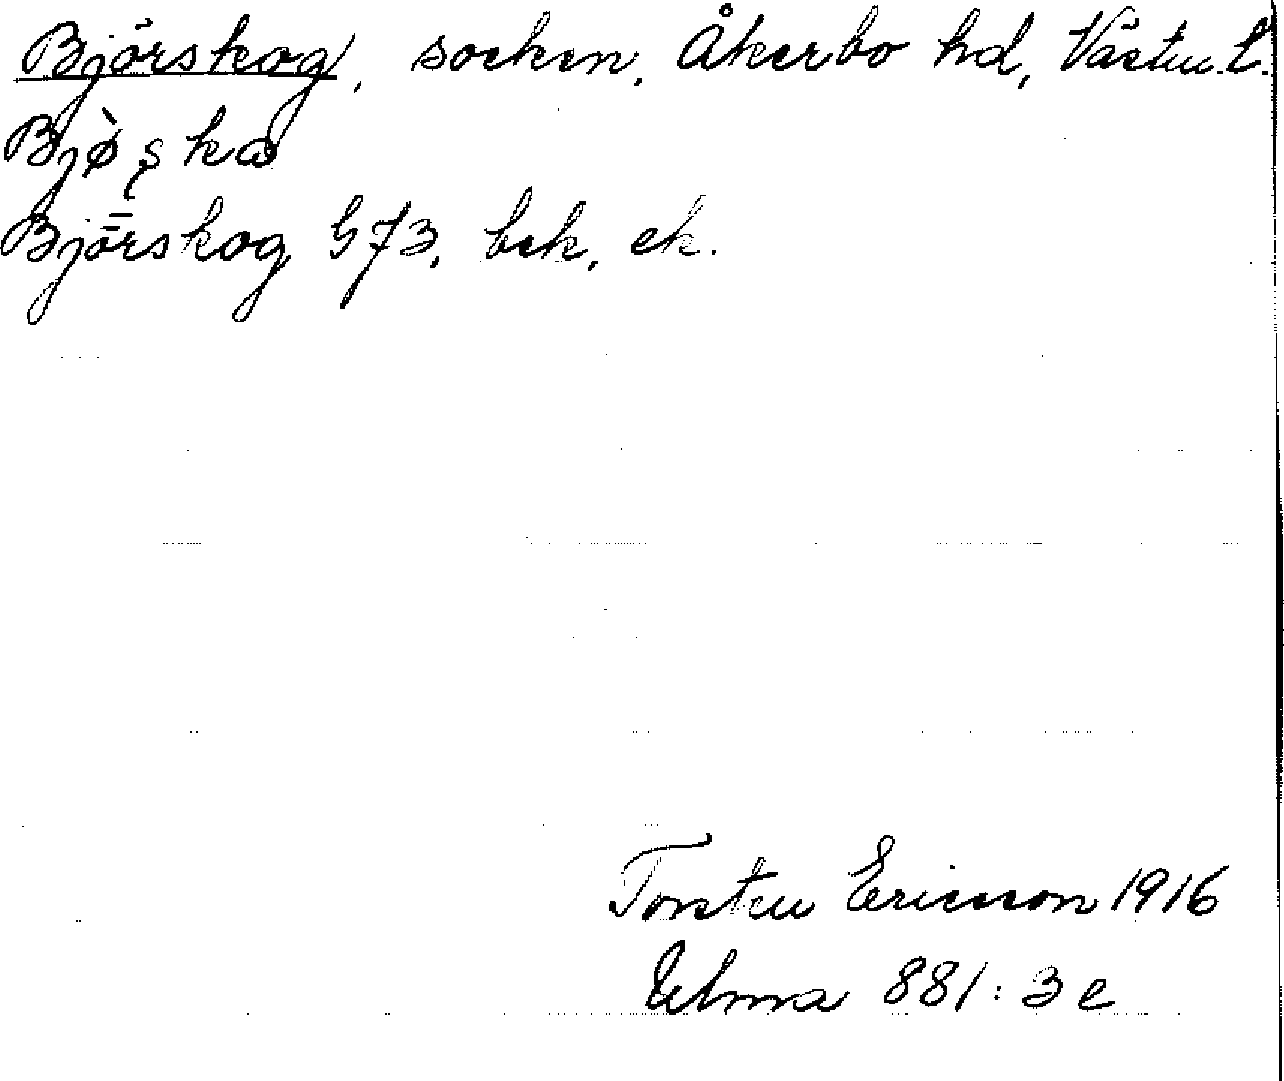 Björskog, socken, Åkerbo hd, Västm. l.
Björskog G73, bek, ek.
Torsten Ericsson 1916
Ulma 881:3e